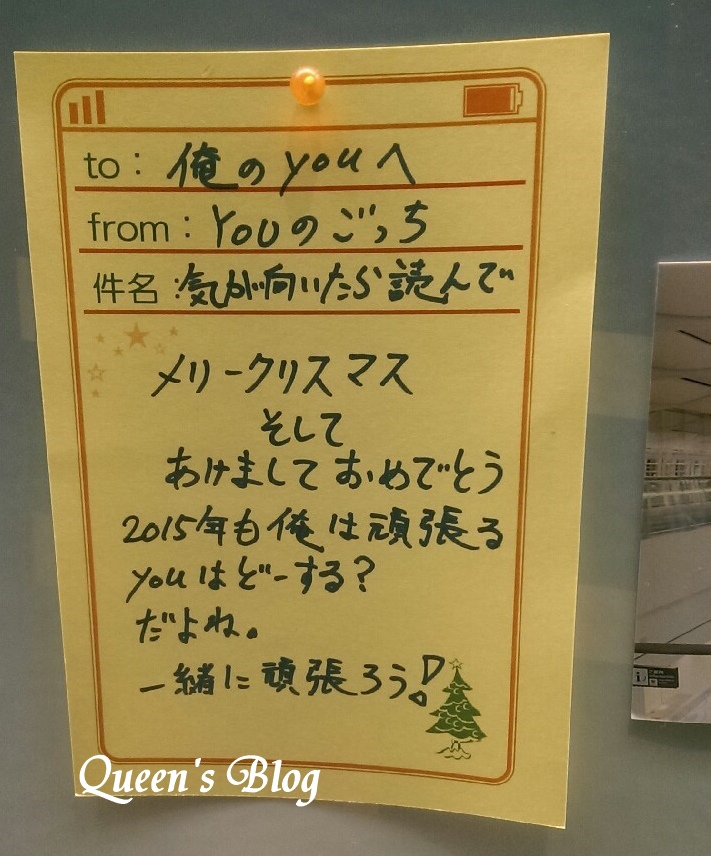 to: 俺のyouへ
from: Youのごっち
件名:気が向いたら読んで
メリークリスマス
そして
あけましておめでとう
2015年も俺は頑張る
youはどーする?
だよね。
一緒に頑張ろう!
Queen's Blog